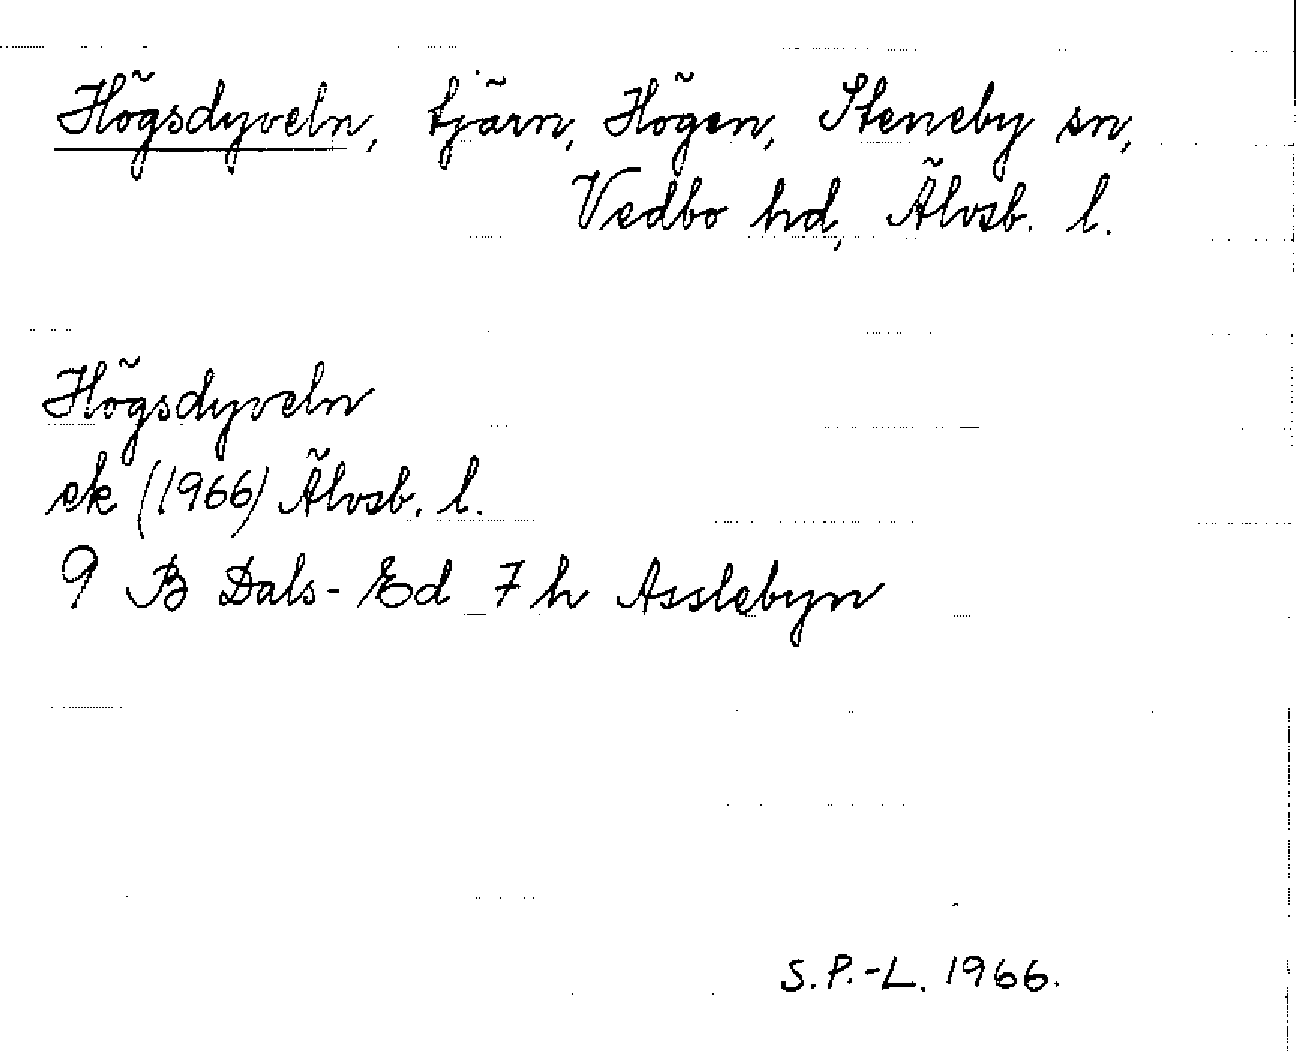 Högsdyveln, tjärn, Högen, Steneby sn,
Vedbo hd, Älvsb. l.
Högsdyveln
ek (1966) Älvsb. l.
9 B Dals-Ed 7 h Asslebyn
S.P.-L. 1966.